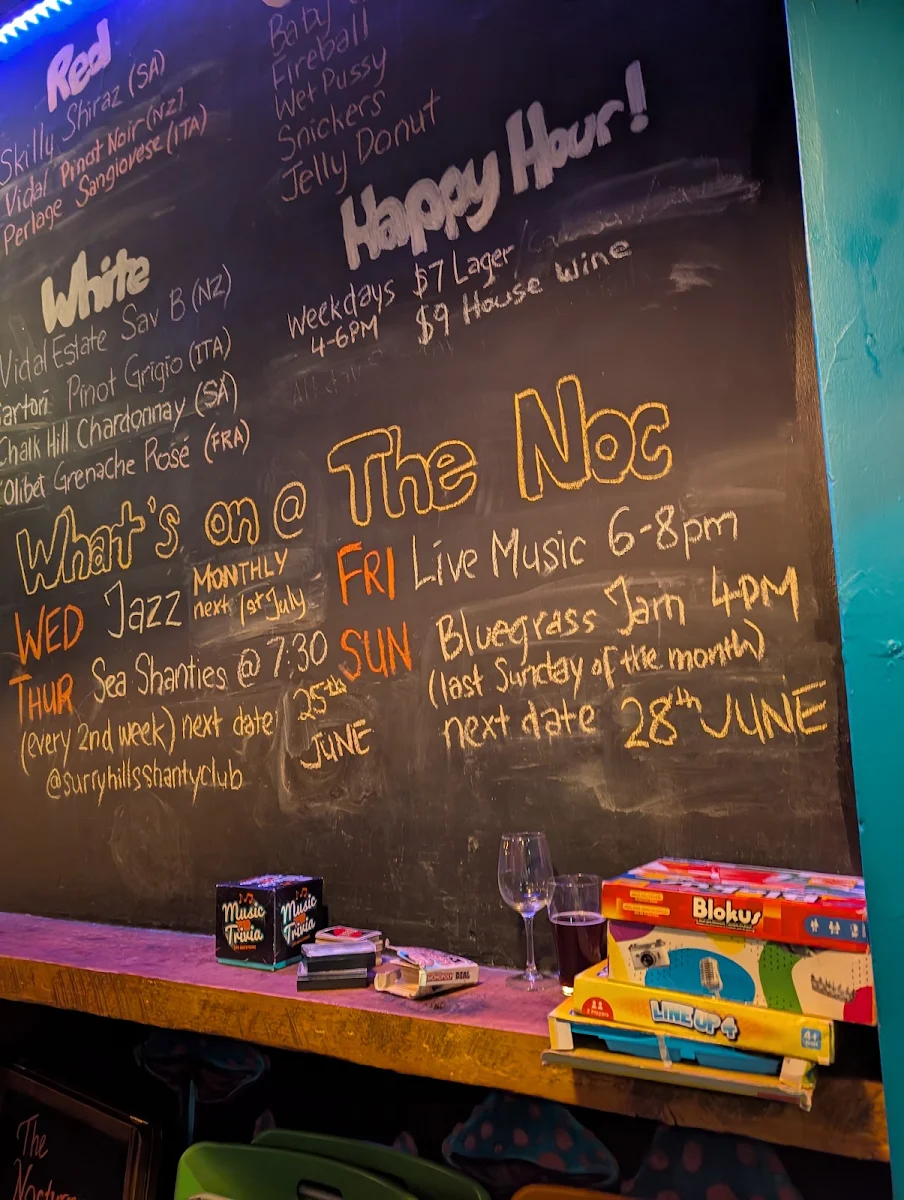 Red
Skilly Shiraz (SA)
Vidal Pinot Noir (NZ)
Perlage Sangiovese (ITA)
White
Vidal Estate Sav B (NZ)
Sartori Pinot Grigio (ITA)
Chalk Hill Chardonnay (SA)
Olibet Grenache Rosé (FRA)
Baby
Fireball
Wet Pussy
Snickers
Jelly Donut
Happy Hour!
Weekdays $7 Lager/
4-6PM $9 House wine
What's on @ The Noc
WED Jazz MONTHLY
next 1st July
THUR Sea Shanties @ 7:30
(every 2nd week) next date 25th
JUNE
@surryhillsshantyclub
FRI Live Music 6-8pm
SUN Bluegrass Jam 4PM
(last Sunday of the month)
next date 28th JUNE
Music
Trivia
Music
Trivia
MONOPOLY DEAL
Blokus
LINE UP 4
2 Players
4+
The